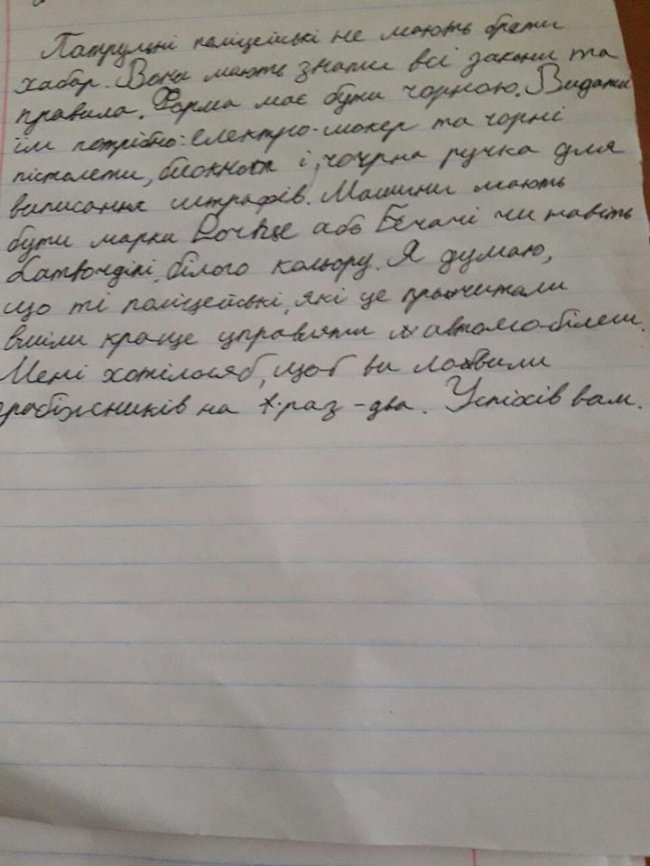 Патрульні поліцейські не мають брати
хабар. Вони мають знати всі закони та
правила. Форма має бути чорною. Видати
їм потрібно: електро-шокер та чорні
пістолети, блокнот і, чочрна ручка для
виписання штрафів. Машини мають
бути марки або чи навіть
білого кольору. Я думаю,
що ті поліцейські, які це прочитали
вміли краще управляти автомо-білем.
Мені хотілосяб, щоб ви ловили
грабіжників на раз-два. Успіхів вам.